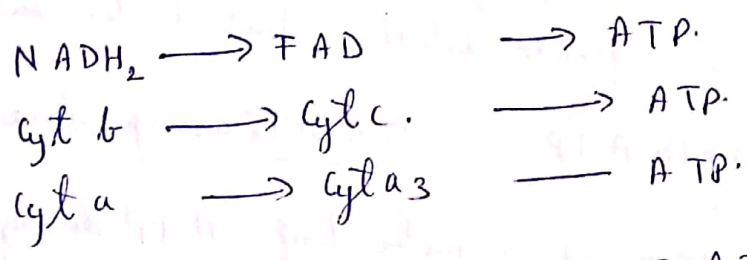 NADH₂ → FAD → ATP.
Cyt b → Cyt c. → ATP.
Cyt a → Cyt a₃ — ATP.